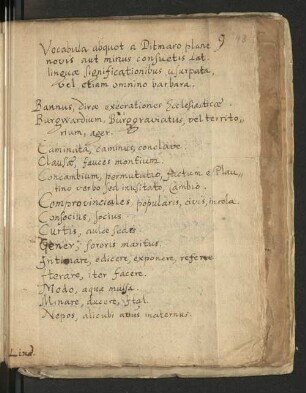 9
Vocabula aliquot a Ditmaro plane
novis aut minus consuetis Lat.
linguæ significationibus usurpata,
vel etiam omnino barbara.
Bannus, diræ execrationes Ecclesiasticæ
Burgwardium, Burggraviatus, vel territo-
rium, ager.
Caminata, caminus, conclave.
Clausæ, fauces montium.
Concambium, permutatio, factum e Plau-
tino verbo sed inusitato, Cambio.
Comprovinciales, popularis, civis, incola.
Consocius, socius.
Curtis, aulæ sedes.
Gener, sororis maritus.
Intimare, edicere, exponere, referre
Iterare, iter facere.
Medo, aqua mulsa.
Minare, ducere, Ital.
Nepos, alicubi avus maternus.
Lind.